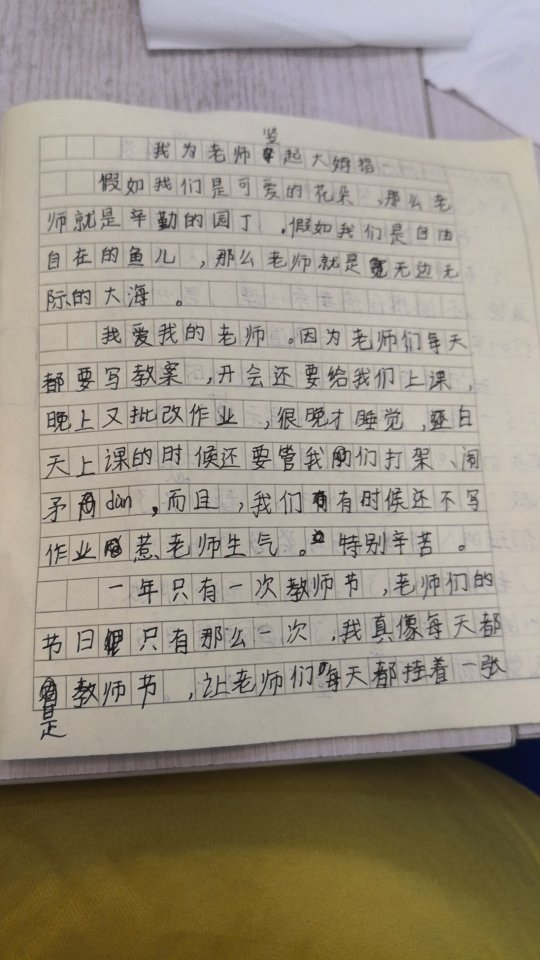 我为老师竖起大姆指
假如我们是可爱的花朵，那么老
师就是辛勤的园丁。假如我们是自由
自在的鱼儿，那么老师就是宽无边无
际的大海。
我爱我的老师。因为老师们每天
都要写教案，开会还要给我们上课，
晚上又批改作业，很晚才睡觉，白
天上课的时候还要管我们打架、闹
矛dùn，而且，我们有时候还不写
作业惹老师生气。特别辛苦。
一年只有一次教师节，老师们的
节日只有那么一次，我真像每天都
是教师节，让老师们每天都挂着一张